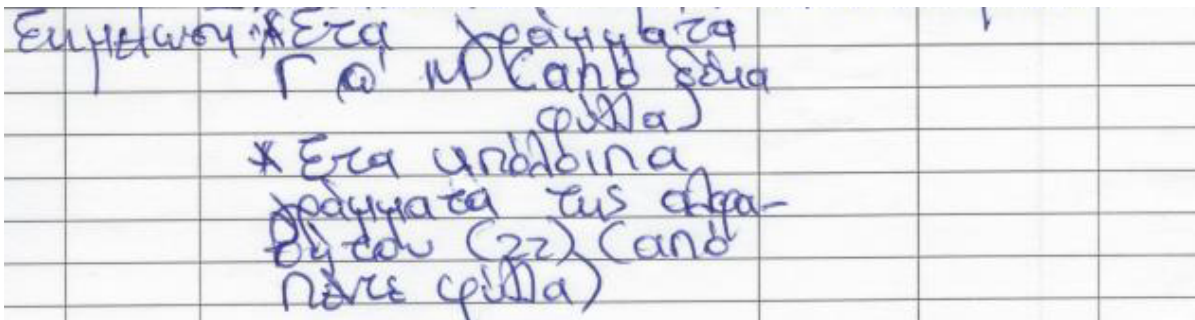 Σημείωση * Στα γράμματα
Γ @ ΜΡ (από δέκα
φύλλα)
* Στα υπόλοιπα
γράμματα της αλφα-
βήτου (22) (από
πέντε φύλλα)